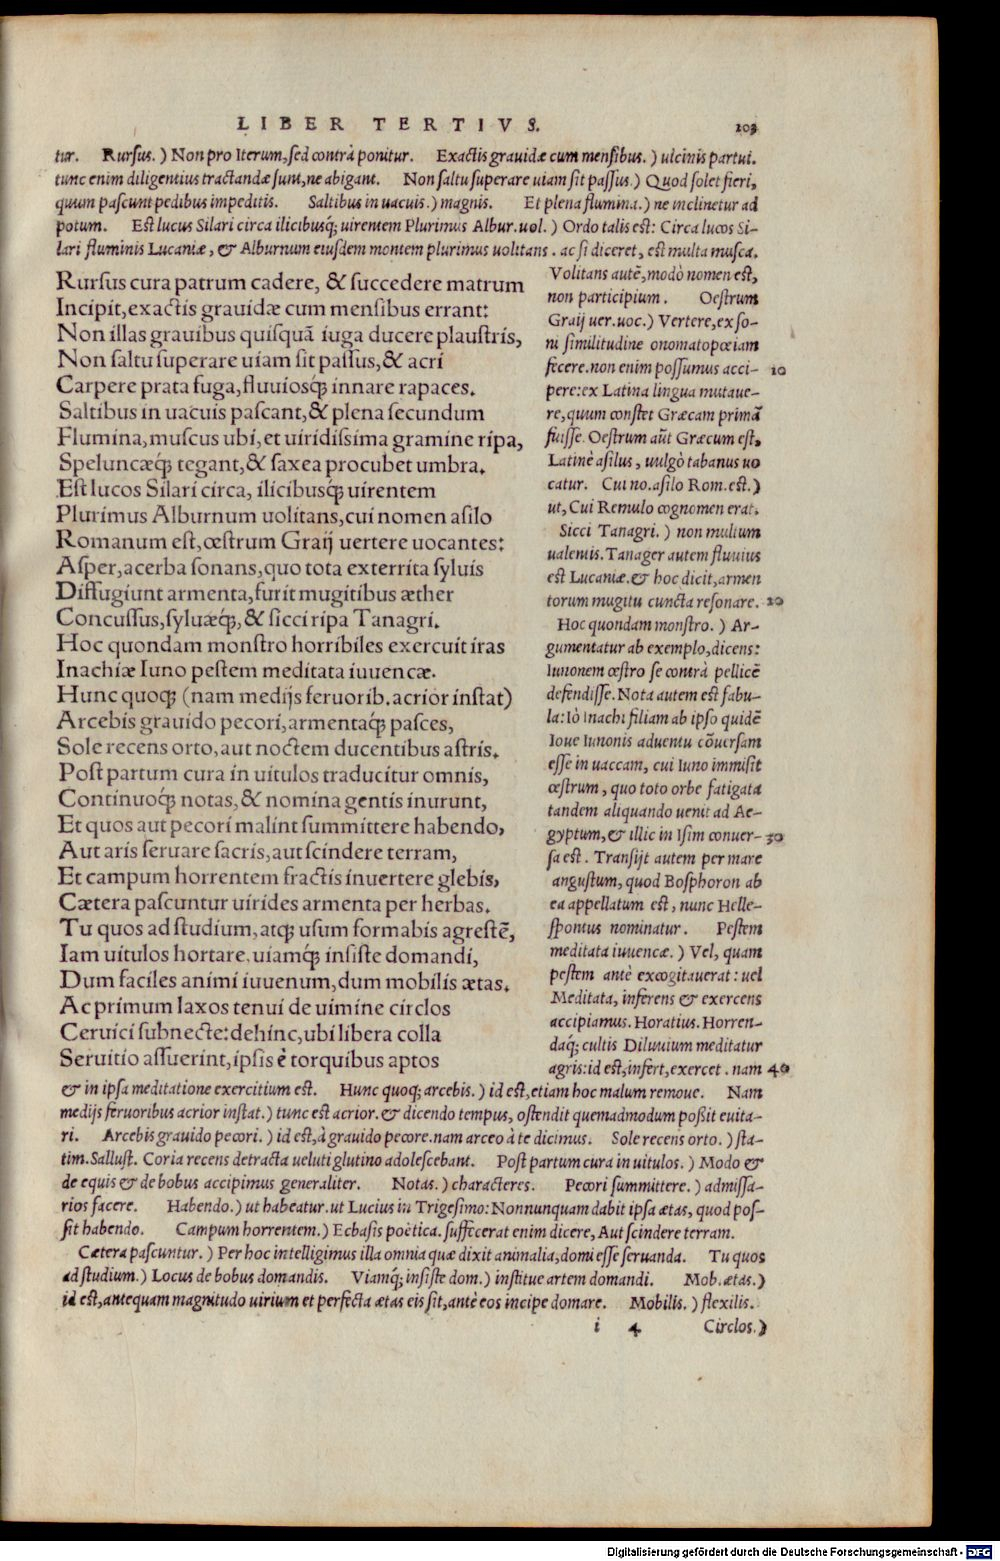 LIBER TERTIVS. 103
tur. Rursus.) Non pro Iterum, sed contrà ponitur. Exactis grauidæ cum mensibus.) uicinis partui.
tunc enim diligentius tractandæ sunt, ne abigant. Non saltu superare uiam sit passus.) Quod solet fieri,
quum pascunt pedibus impeditis. Saltibus in uacuis.) magnis. Et plena flumina.) ne inclinetur ad
potum. Est lucus Silari circa ilicibusq́; uirentem Plurimus Albur. uol.) Ordo talis est: Circa lucos Si-
lari fluminis Lucaniæ, & Alburnum eiusdem montem plurimus uolitans. ac si diceret, est multa musca.
Rursus cura patrum cadere, & succedere matrum
Incipit, exactis grauidæ cum mensibus errant:
Non illas grauibus quisquã iuga ducere plaustris,
Non saltu superare uiam sit passus, & acri
Carpere prata fuga, fluuiosq́; innare rapaces.
Saltibus in uacuis pascant, & plena secundum
Flumina, muscus ubi, et uiridissima gramine ripa,
Speluncæq́; tegant, & saxea procubet umbra.
Est lucos Silari circa, ilicibusq́; uirentem
Plurimus Alburnum uolitans, cui nomen asilo
Romanum est, œstrum Graij uertere uocantes:
Asper, acerba sonans, quo tota exterrita syluis
Diffugiunt armenta, furit mugitibus æther
Concussus, syluæq́;, & sicci ripa Tanagri.
Hoc quondam monstro horribiles exercuit iras
Inachiæ Iuno pestem meditata iuuencæ.
Hunc quoq; (nam medijs feruorib. acrior instat)
Arcebis grauido pecori, armentaq́; pasces,
Sole recens orto, aut noctem ducentibus astris.
Post partum cura in uitulos traducitur omnis,
Continuoq́; notas, & nomina gentis inurunt,
Et quos aut pecori malint summittere habendo,
Aut aris seruare sacris, aut scindere terram,
Et campum horrentem fractis inuertere glebis,
Cætera pascuntur uirides armenta per herbas.
Tu quos ad studium, atq; usum formabis agrestẽ,
Iam uitulos hortare, uiamq́; insiste domandi,
Dum faciles animi iuuenum, dum mobilis ætas.
Ac primum laxos tenui de uimine circlos
Ceruici subnecte: dehinc, ubi libera colla
Seruitio assuerint, ipsis è torquibus aptos
Volitans autẽ, modò nomen est,
non participium. Oestrum
Graij uer. uoc.) Vertere, ex so-
ni similitudine onomatopœiam
fecere. non enim possumus acci- 10
pere: ex Latina lingua mutaue-
re, quum constet Græcam primã
fuisse. Oestrum aũt Græcum est,
Latinè asilus, uulgò tabanus uo
catur. Cui no. asilo Rom. est.)
ut, Cui Remulo cognomen erat.
Sicci Tanagri.) non multum
ualentis. Tanager autem fluuius
est Lucaniæ. & hoc dicit, armen
torum mugitu cuncta resonare. 20
Hoc quondam monstro.) Ar-
gumentatur ab exemplo, dicens:
Iunonem œstro se contrà pellicẽ
defendisse. Nota autem est fabu-
la: Iò Inachi filiam ab ipso quidẽ
Ioue Iunonis aduentu cõuersam
esse in uaccam, cui Iuno immisit
œstrum, quo toto orbe fatigata
tandem aliquando uenit ad Ae-
gyptum, & illic in Isim conuer- 30
sa est. Transijt autem per mare
angustum, quod Bosphoron ab
ea appellatum est, nunc Helle-
spontus nominatur. Pestem
meditata iuuencæ.) Vel, quam
pestem antè excogitauerat: uel
Meditata, inferens & exercens
accipiamus. Horatius. Horren-
daq́; cultis Diluuium meditatur
agris: id est, infert, exercet. nam 40
& in ipsa meditatione exercitium est. Hunc quoq; arcebis.) id est, etiam hoc malum remoue. Nam
medijs feruoribus acrior instat.) tunc est acrior. & dicendo tempus, ostendit quemadmodum poßit euita-
ri. Arcebis grauido pecori.) id est, à grauido pecore. nam arceo à te dicimus. Sole recens orto.) sta-
tim. Sallust. Coria recens detracta ueluti glutino adolescebant. Post partum cura in uitulos.) Modo &
de equis & de bobus accipimus generaliter. Notas.) characteres. Pecori summittere.) admissa-
rios facere. Habendo.) ut habeatur. ut Lucius in Trigesimo: Nonnunquam dabit ipsa ætas, quod pos-
sit habendo. Campum horrentem.) Ecbasis poëtica. suffecerat enim dicere, Aut scindere terram.
Cætera pascuntur.) Per hoc intelligimus illa omnia quæ dixit animalia, domi esse seruanda. Tu quos
ad studium.) Locus de bobus domandis. Viamq́; insiste dom.) institue artem domandi. Mob. ætas.)
id est, antequam magnitudo uirium et perfecta ætas eis sit, antè eos incipe domare. Mobilis.) flexilis.
i 4 Circlos.)
Digitalisierung gefördert durch die Deutsche Forschungsgemeinschaft - DFG